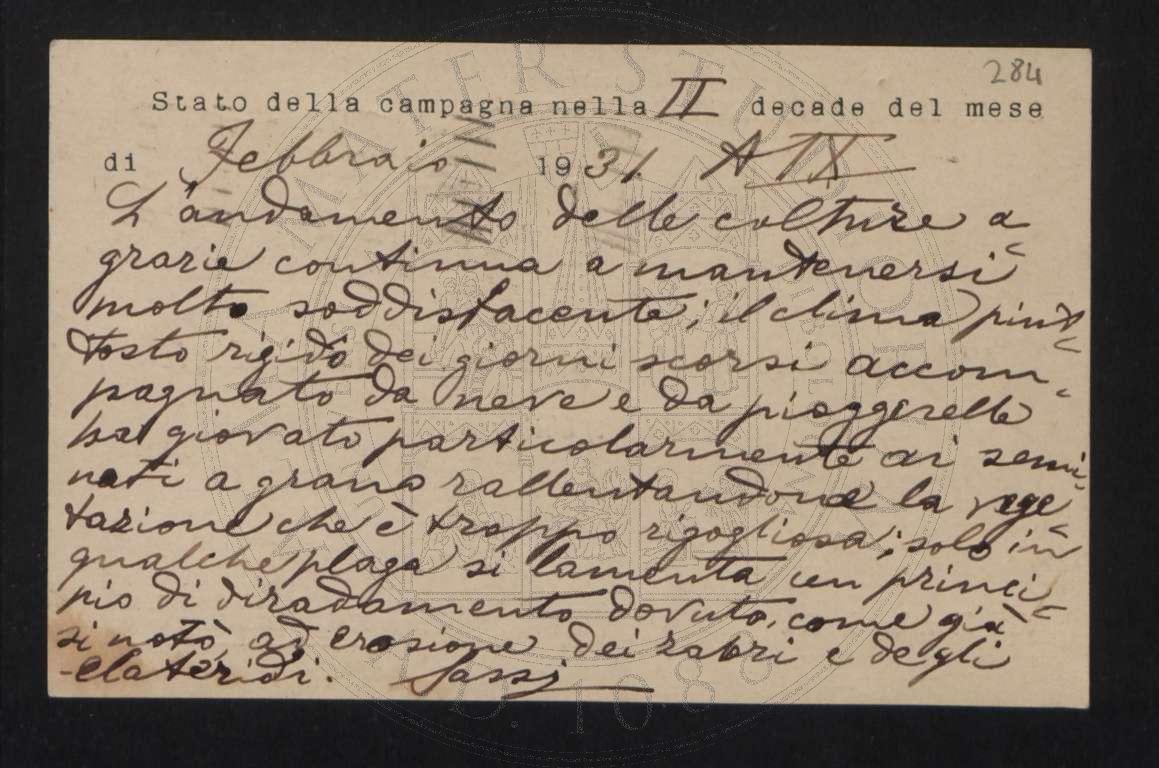 284
Stato della campagna nella II decade del mese
di Febbraio 1931. A IX
L'andamento delle colture a
grazie continua a mantenersi
molto soddisfacente; il clima piut-
tosto rigido dei giorni scorsi accom-
pagnato da neve e da pioggerelle
ha giovato particolarmente ai semi-
nati a grano rallentandone la vege
tazione che è troppo rigogliosa; solo in
qualche plaga si lamenta un princi-
pio di diradamento dovuto, come già
si notò ad erosione dei zabri e degli
-elateridi. Sassi
ALMA MATER STUDIORUM
A.D. 1088